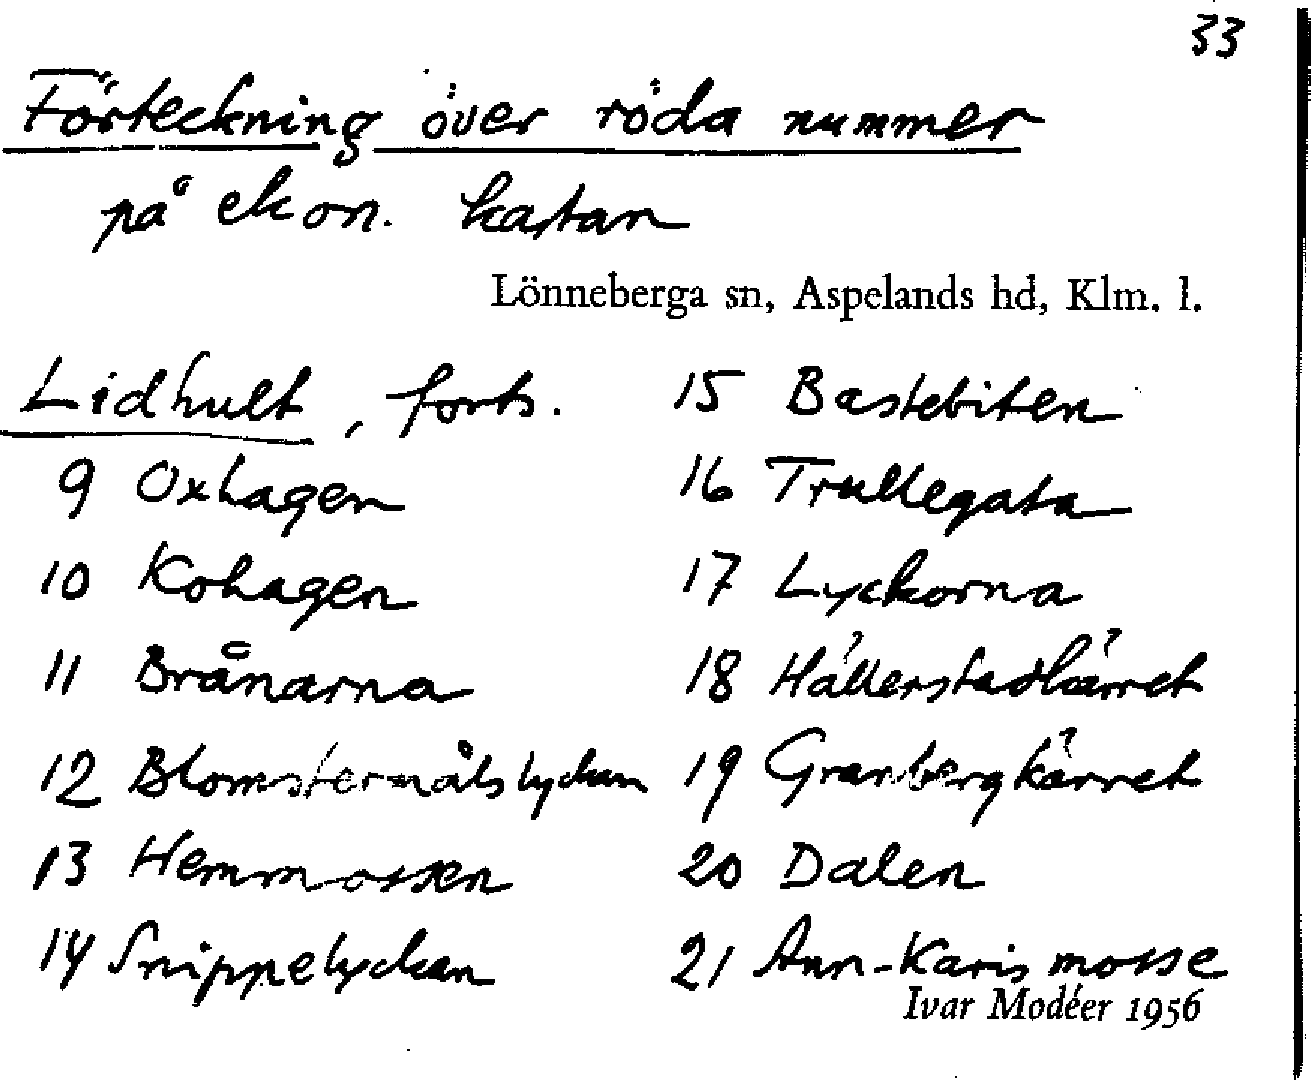 33
Förteckning över röda nummer
på ekon. kartan
Lönneberga sn, Aspelands hd, Klm. l.
Lidhult, forts.
9 Oxhagen
10 Kohagen
11 Brånarna
12 Blomstermålslyckan
13 Hemmossen
14 Snippelyckan
15 Bastebiten
16 Trullegata
17 Lyckorna
18 Hällerstadkärret
19 Granbergkärret
20 Dalen
21 Ann-Karis mosse
Ivar Modéer 1956